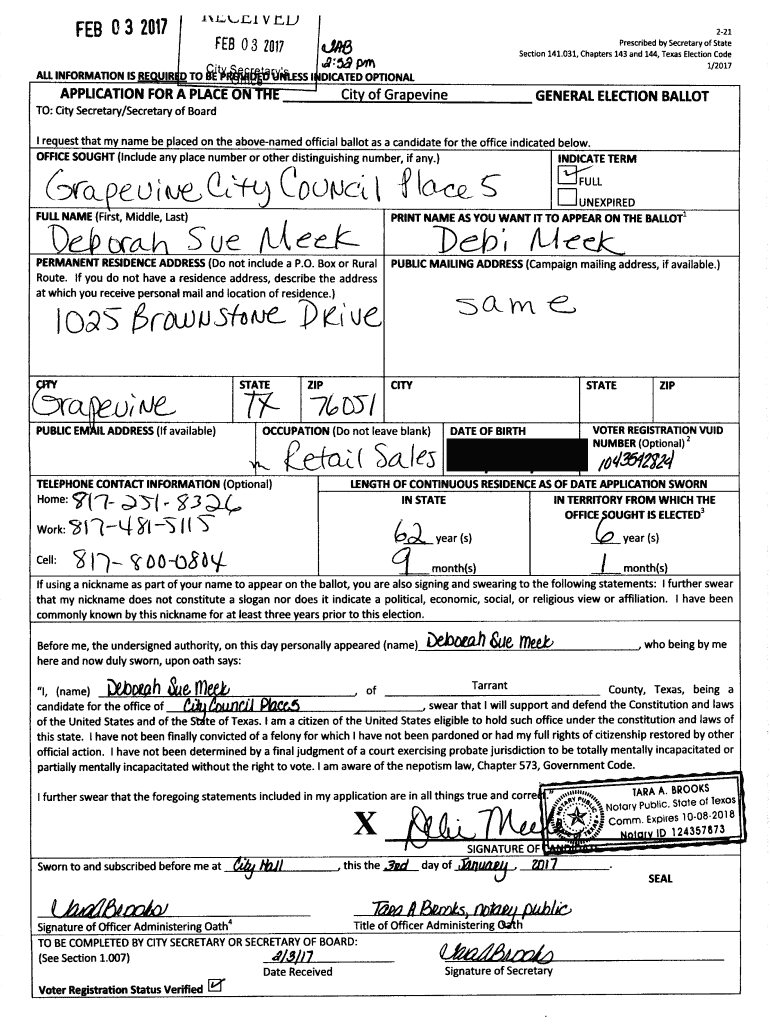 FEB 03 2017
RECEIVED
FEB 03 2017
City Secretary's
2:52 pm
2-21
Prescribed by Secretary of State
Section 141.031, Chapters 143 and 144, Texas Election Code
1/2017
ALL INFORMATION IS REQUIRED TO BE PROVIDED UNLESS INDICATED OPTIONAL
APPLICATION FOR A PLACE ON THE City of Grapevine GENERAL ELECTION BALLOT
TO: City Secretary/Secretary of Board
I request that my name be placed on the above-named official ballot as a candidate for the office indicated below.
OFFICE SOUGHT (Include any place number or other distinguishing number, if any.) INDICATE TERM
Grapevine City Council Place 5
FULL
UNEXPIRED
FULL NAME (First, Middle, Last) PRINT NAME AS YOU WANT IT TO APPEAR ON THE BALLOT1
Deborah Sue Meek Debi Meek
PERMANENT RESIDENCE ADDRESS (Do not include a P.O. Box or Rural
Route. If you do not have a residence address, describe the address
at which you receive personal mail and location of residence.)
PUBLIC MAILING ADDRESS (Campaign mailing address, if available.)
1025 Brownstone Drive
same
CITY STATE ZIP CITY STATE ZIP
Grapevine TX 76051
PUBLIC EMAIL ADDRESS (If available) OCCUPATION (Do not leave blank) DATE OF BIRTH VOTER REGISTRATION VUID
NUMBER (Optional) 2
Retail Sales 1043542824
TELEPHONE CONTACT INFORMATION (Optional) LENGTH OF CONTINUOUS RESIDENCE AS OF DATE APPLICATION SWORN
Home: 817-251-8326 IN STATE IN TERRITORY FROM WHICH THE
OFFICE SOUGHT IS ELECTED3
Work: 817-481-5115 62 year (s) 6 year (s)
Cell: 817-800-0804 9 month(s) 1 month(s)
If using a nickname as part of your name to appear on the ballot, you are also signing and swearing to the following statements: I further swear
that my nickname does not constitute a slogan nor does it indicate a political, economic, social, or religious view or affiliation. I have been
commonly known by this nickname for at least three years prior to this election.
Before me, the undersigned authority, on this day personally appeared (name) Deborah Sue Meek, who being by me
here and now duly sworn, upon oath says:
"I, (name) Deborah Sue Meek, of Tarrant County, Texas, being a
candidate for the office of City Council Place 5, swear that I will support and defend the Constitution and laws
of the United States and of the State of Texas. I am a citizen of the United States eligible to hold such office under the constitution and laws of
this state. I have not been finally convicted of a felony for which I have not been pardoned or had my full rights of citizenship restored by other
official action. I have not been determined by a final judgment of a court exercising probate jurisdiction to be totally mentally incapacitated or
partially mentally incapacitated without the right to vote. I am aware of the nepotism law, Chapter 573, Government Code.
I further swear that the foregoing statements included in my application are in all things true and correct."
TARA A. BROOKS
Notary Public, State of Texas
Comm. Expires 10-08-2018
Notary ID 124357873
X Debi Meek
SIGNATURE OF CANDIDATE
Sworn to and subscribed before me at City Hall, this the 3rd day of January, 2017.
SEAL
Tara A Brooks Tara A Brooks, notary public
Signature of Officer Administering Oath4 Title of Officer Administering Oath
TO BE COMPLETED BY CITY SECRETARY OR SECRETARY OF BOARD:
(See Section 1.007) 2/3/17 Tara A Brooks
Date Received Signature of Secretary
Voter Registration Status Verified